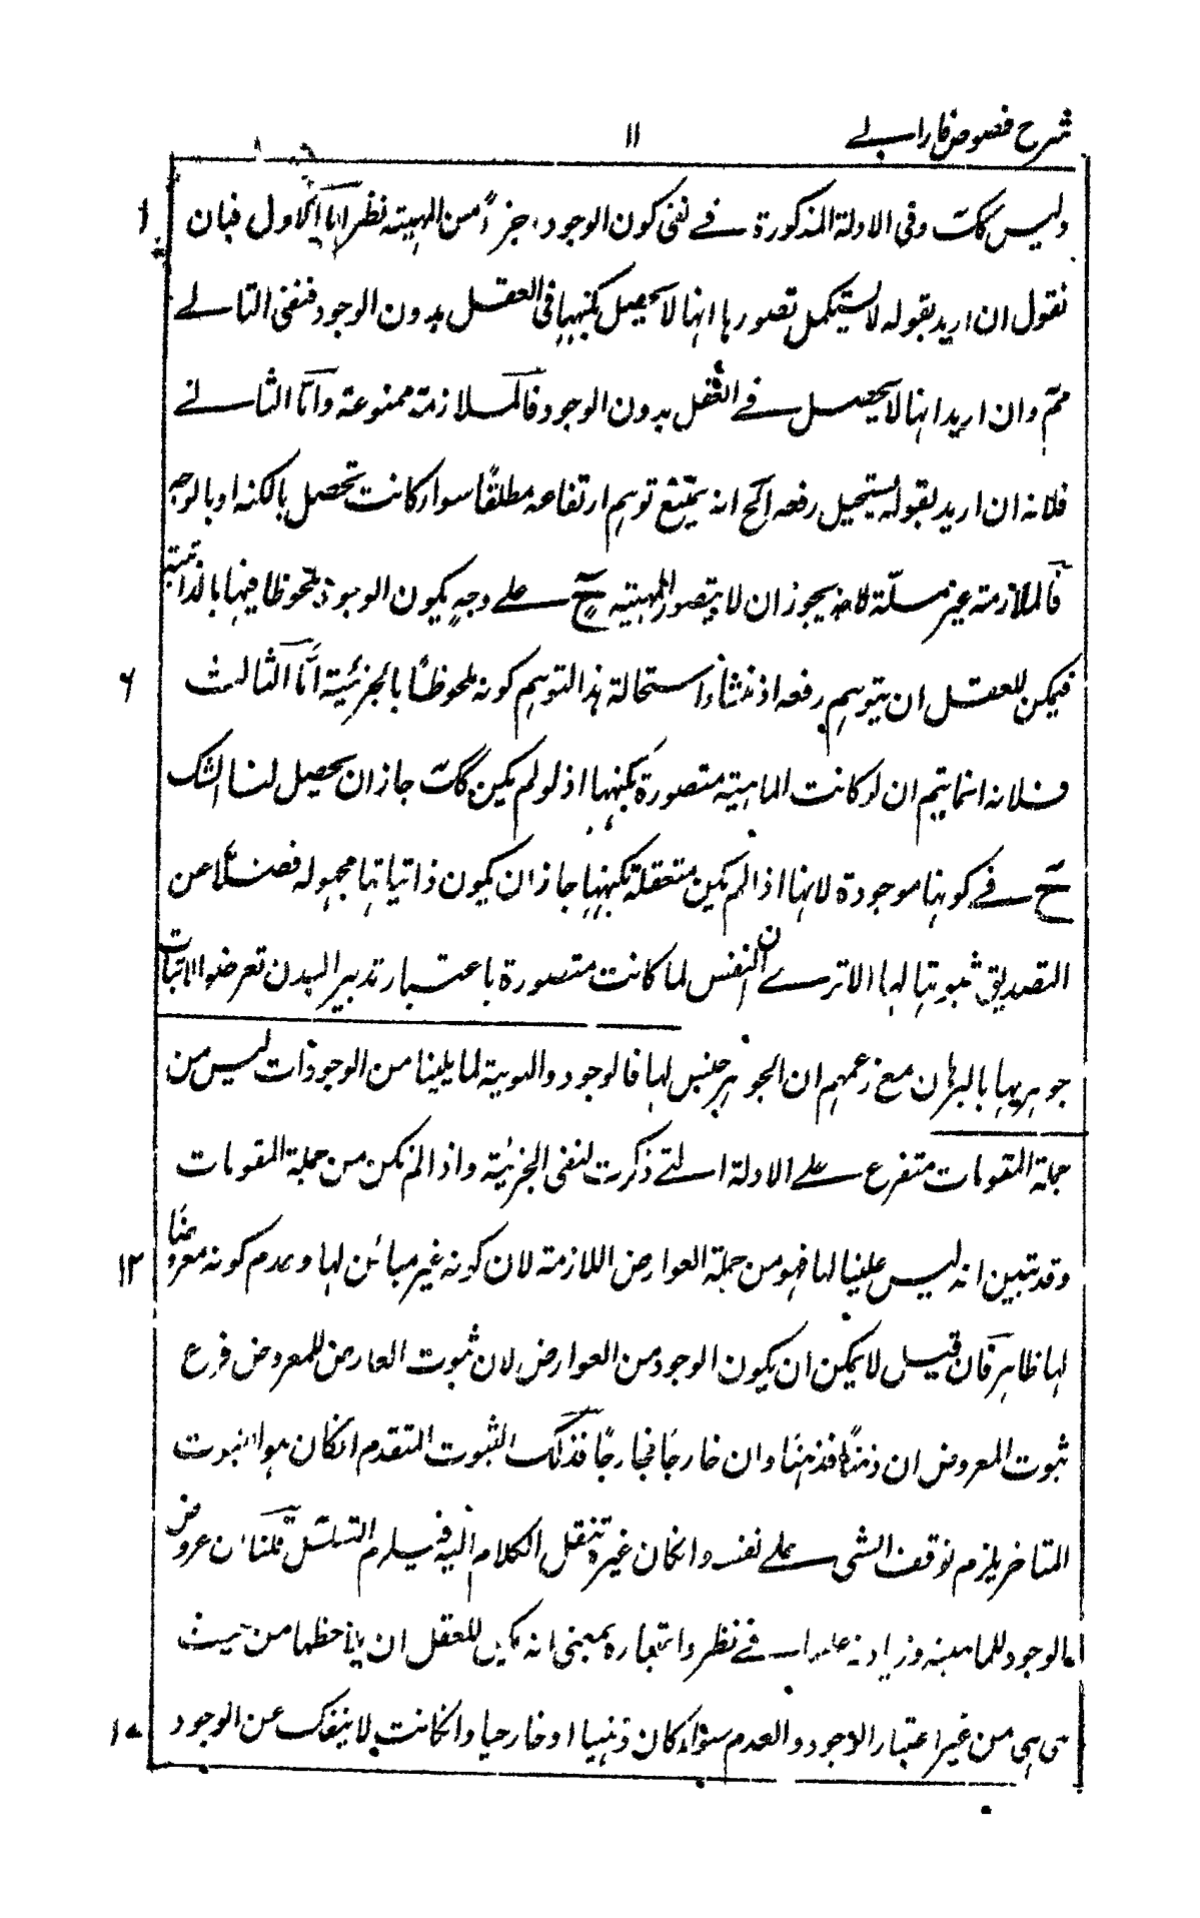 شرح فصوص فارابے
۱۱
ولیس کک وفی الادلة المذکورة فے نفی کون الوجود جزءً من المہیته نظر اما الاول فبان
نقول ان ارید بقوله لا یستکمل تصورہا انہا لا یحصل بکنہہا فی العقل بدون الوجود فنفی التالے
مم وان ارید انہا لا یحصل فے العقل بدون الوجود فالملازمة ممنوعة واما الثانے
فلانه ان ارید بقوله یستحیل رفعه الخ انه یمتنع توہم ارتفاعه مطلقًا سواء کانت تحصل بالکنه او بالوجه
فالملازمة غیر مسلمة لانه یجوز ان لا یتصور المہیته ح علے وجهٍ یکون الوجود ملحوظا فیہا بالذاتیة
فیمکن للعقل ان یتوہم رفعه اذ منشاء استحالة ہذا التوہم کونه ملحوظًا بالجزئیة امّا الثالث
۶
فلانه انما یتم ان لو کانت الماہیته متصورة بکنہہا اذ لو لم یکن کک جاز ان یحصل لنا الشک
ح فے کونہا موجودة لانہا اذا لم یکن متعقلة بکنہہا جاز ان یکون ذاتیاتہا مجہوله فضلًا عن
التصدیق ثبوتہا لہا الا ترے ان النفس لما کانت متصورة باعتبار تدبیر البدن تعرضوا لاثبات
جوہریہا بالبرہان مع زعمہم ان الجوہر جنس لہا فالوجود والہویة لما یلینا من الوجودات لیس من
جملة المقومات متفرع علے الادلة التے ذکرت لنفی الجزئیة واذا لم نکن من جملة المقومات
وقد تبین انه لیس علینا لہا فہو من جملة العوارض اللازمة لان کونه غیر مبائن لہا وعدم کونه معروضًا
۱۲
لہا ظاہر فان قیل لا یمکن ان یکون الوجود من العوارض لان ثبوت العارض للمعروض فرع
ثبوت المعروض ان ذہنًا فذہنًا وان خارجًا فخارجًا فذلک الثبوت المتقدم انکان ہو الثبوت
المتاخر یلزم توقف الشی علے نفسه وانکان غیره ننقل الکلام الیه فیلزم التسلسل قلنا ان عروض
الوجود للماہیة وزیادته علیہا فے نظر واعتباره بمعنی انه یمکن للعقل ان یلاحظہا من حیث
ہی ہی من غیر اعتبار الوجود والعدم سواء کان ذہنیا او خارجیا وانکانت لا ینفک عن الوجود